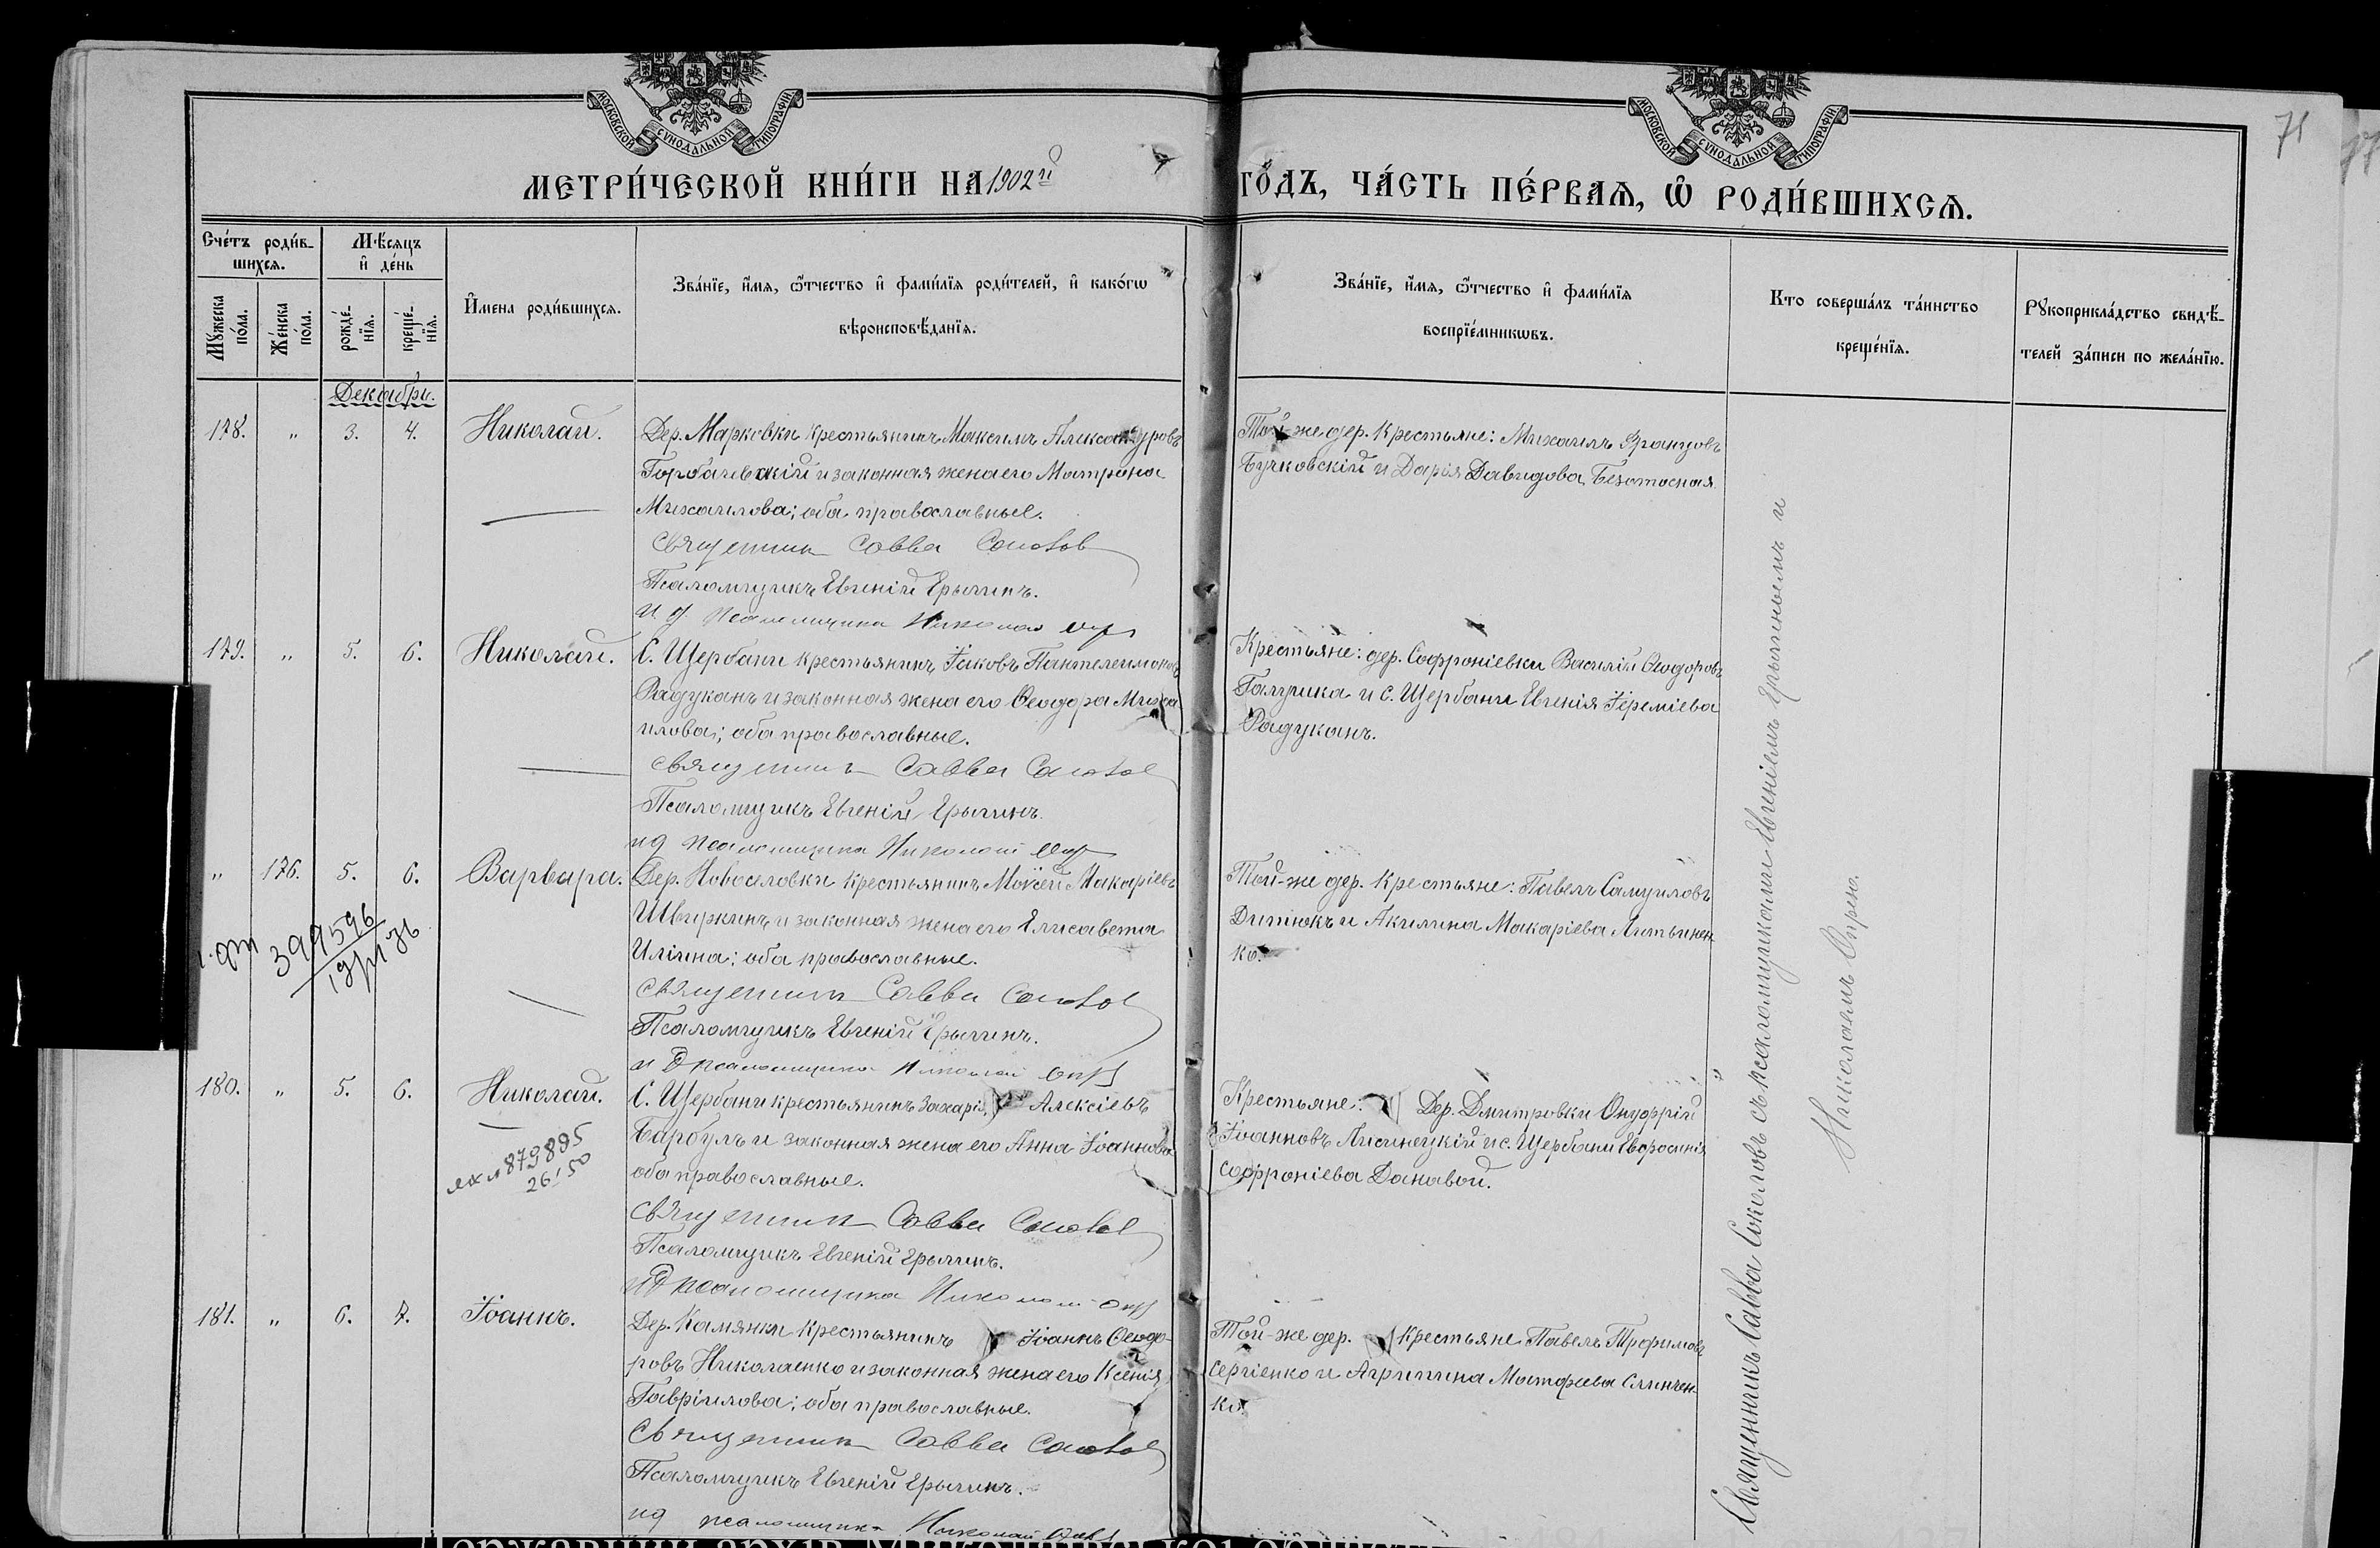 МОСКОВСКОЙ СѴНОДАЛЬНОЙ ТИПОГРАФІИ.
МОСКОВСКОЙ СѴНОДАЛЬНОЙ ТИПОГРАФІИ.
71
МЕТРИ́ЧЕСКОЙ КНИ́ГИ НА 1902й
ГО́ДЪ, ЧА́СТЬ ПЕ́РВАѦ, Ѽ РОДИ́ВШИХСѦ.
Сче́тъ роди́в-
шихсѧ.
Мꙋ́жеска по́ла.
Же́нска по́ла.
Мѣ́сяцъ
и҆ де́нь
рожде́-
нїѧ.
креще́-
нїѧ.
И҆мена роди́вшихсѧ.
Зва́нїе, и҆́мѧ, ѻ҆́тчество и҆ фами́лїѧ роди́телей, и҆ како́гѡ
вѣроисповѣ́данїѧ.
Зва́нїе, и҆́мѧ, ѻ҆́тчество и҆ фами́лїѧ
воспрїе́мникѡвъ.
Кто соверша́лъ та́инство
креще́нїѧ.
Рꙋкоприкла́дство свидѣ́-
телей за́писи по жела́нїю.
Декабрь.
178. " 3. 4. Николай.
Дер. Марковки крестьянинъ Максимъ Александровъ
Горбачевскій и законная жена его Матрона
Михаилова; оба православные.
Священник Савва Соколов
Псаломщикъ Евгеній Ерыгинъ.
и. д. псаломщика Николай
Той-же дер. крестьяне: Михаилъ Францовъ
Бучковскій и Дарія Давидова Безотосная.
179. " 5. 6. Николай.
С. Щербани крестьянинъ Іаковъ Пантелеимоновъ
Радуканъ и законная жена его Ѳеодора Миха
илова; оба православные.
Священникъ Савва Соколов
Псаломщикъ Евгеній Ерыгинъ.
ид псаломщика Николай
Крестьяне: дер. Софроніевки Василій Ѳеодоровъ
Галушка и с. Щербани Евгенія Іереміева
Радуканъ.
" 176. 5. 6. Варвара.
Дер. Новоселовки крестьянинъ Моѵсей Макаріевъ
Швыркинъ и законная жена его Елисавета
Иліина; оба православные.
Священник Савва Соколов
Псаломщикъ Евгеній Ерыгинъ.
и д псаломщика Николай
Той-же дер. крестьяне: Павелъ Самуиловъ
Дитюкъ и Акилина Макаріева Литвинен
ко.
399596
180. " 5. 6. Николай.
С. Щербани крестьянинъ Захарія Алексіевъ
Барбулъ и законная жена его Анна Іоаннова
оба православные.
Священник Савва Соколов
Псаломщикъ Евгеній Ерыгинъ.
ид псаломщика Николай
Крестьяне: Дер. Дмитровки Онуфрій
Іоанновъ Лисинецкій и с. Щербани Евфросинія
Софроніева Данавой.
879895
26! 50
181. " 6. 7. Іоаннъ.
Дер. Камянки крестьянинъ Іоаннъ Ѳеодо-
ровъ Николаенко и законная жена его Ксенія
Гавріилова; оба православные.
Священник Савва Соколов
Псаломщикъ Евгеній Ерыгинъ.
ид псаломщика Николай
Той-же дер. крестьяне Павелъ Трофимовъ
Сергіенко и Агриппина Матфеева Слинчен
ко.
Священникъ Савва Соколовъ съ псаломщиками Евгеніемъ Ерыгинымъ и
Николаемъ Опрею.
Державний архів Миколаївської області